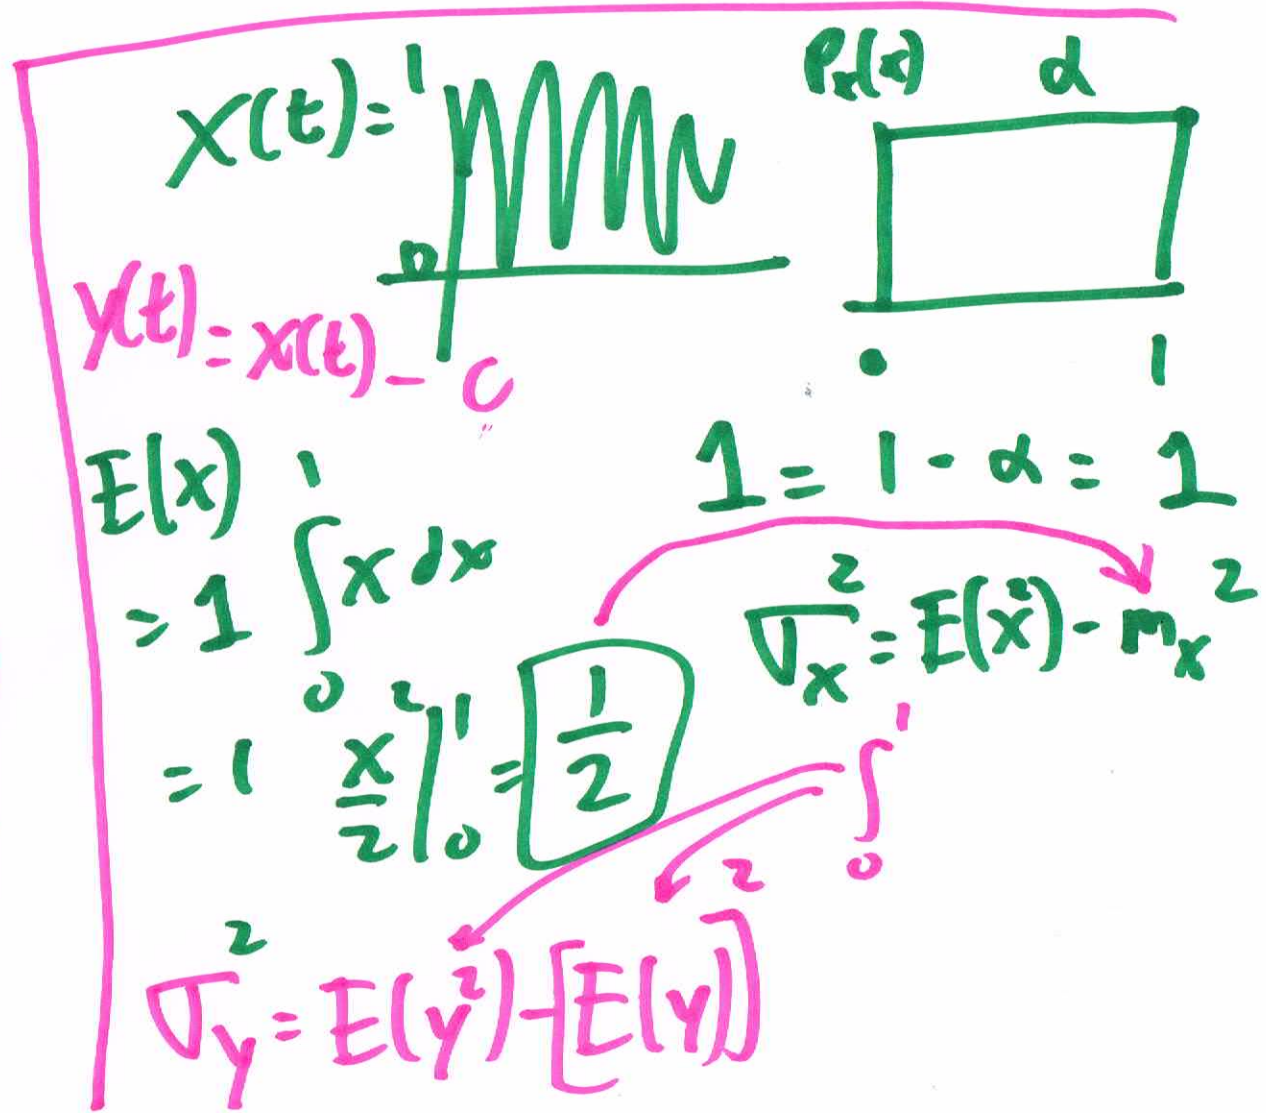 X(t)= 1
0
Pₓ(x) α
0 1
y(t)=x(t)-C
1 = 1 · α = 1
E(x)
= 1 ∫₀¹ x dx
= 1 x²/2 |₀¹ = 1/2
σₓ² = E(x²) - mₓ²
∫₀¹
σ_y² = E(y²) - [E(y)]²